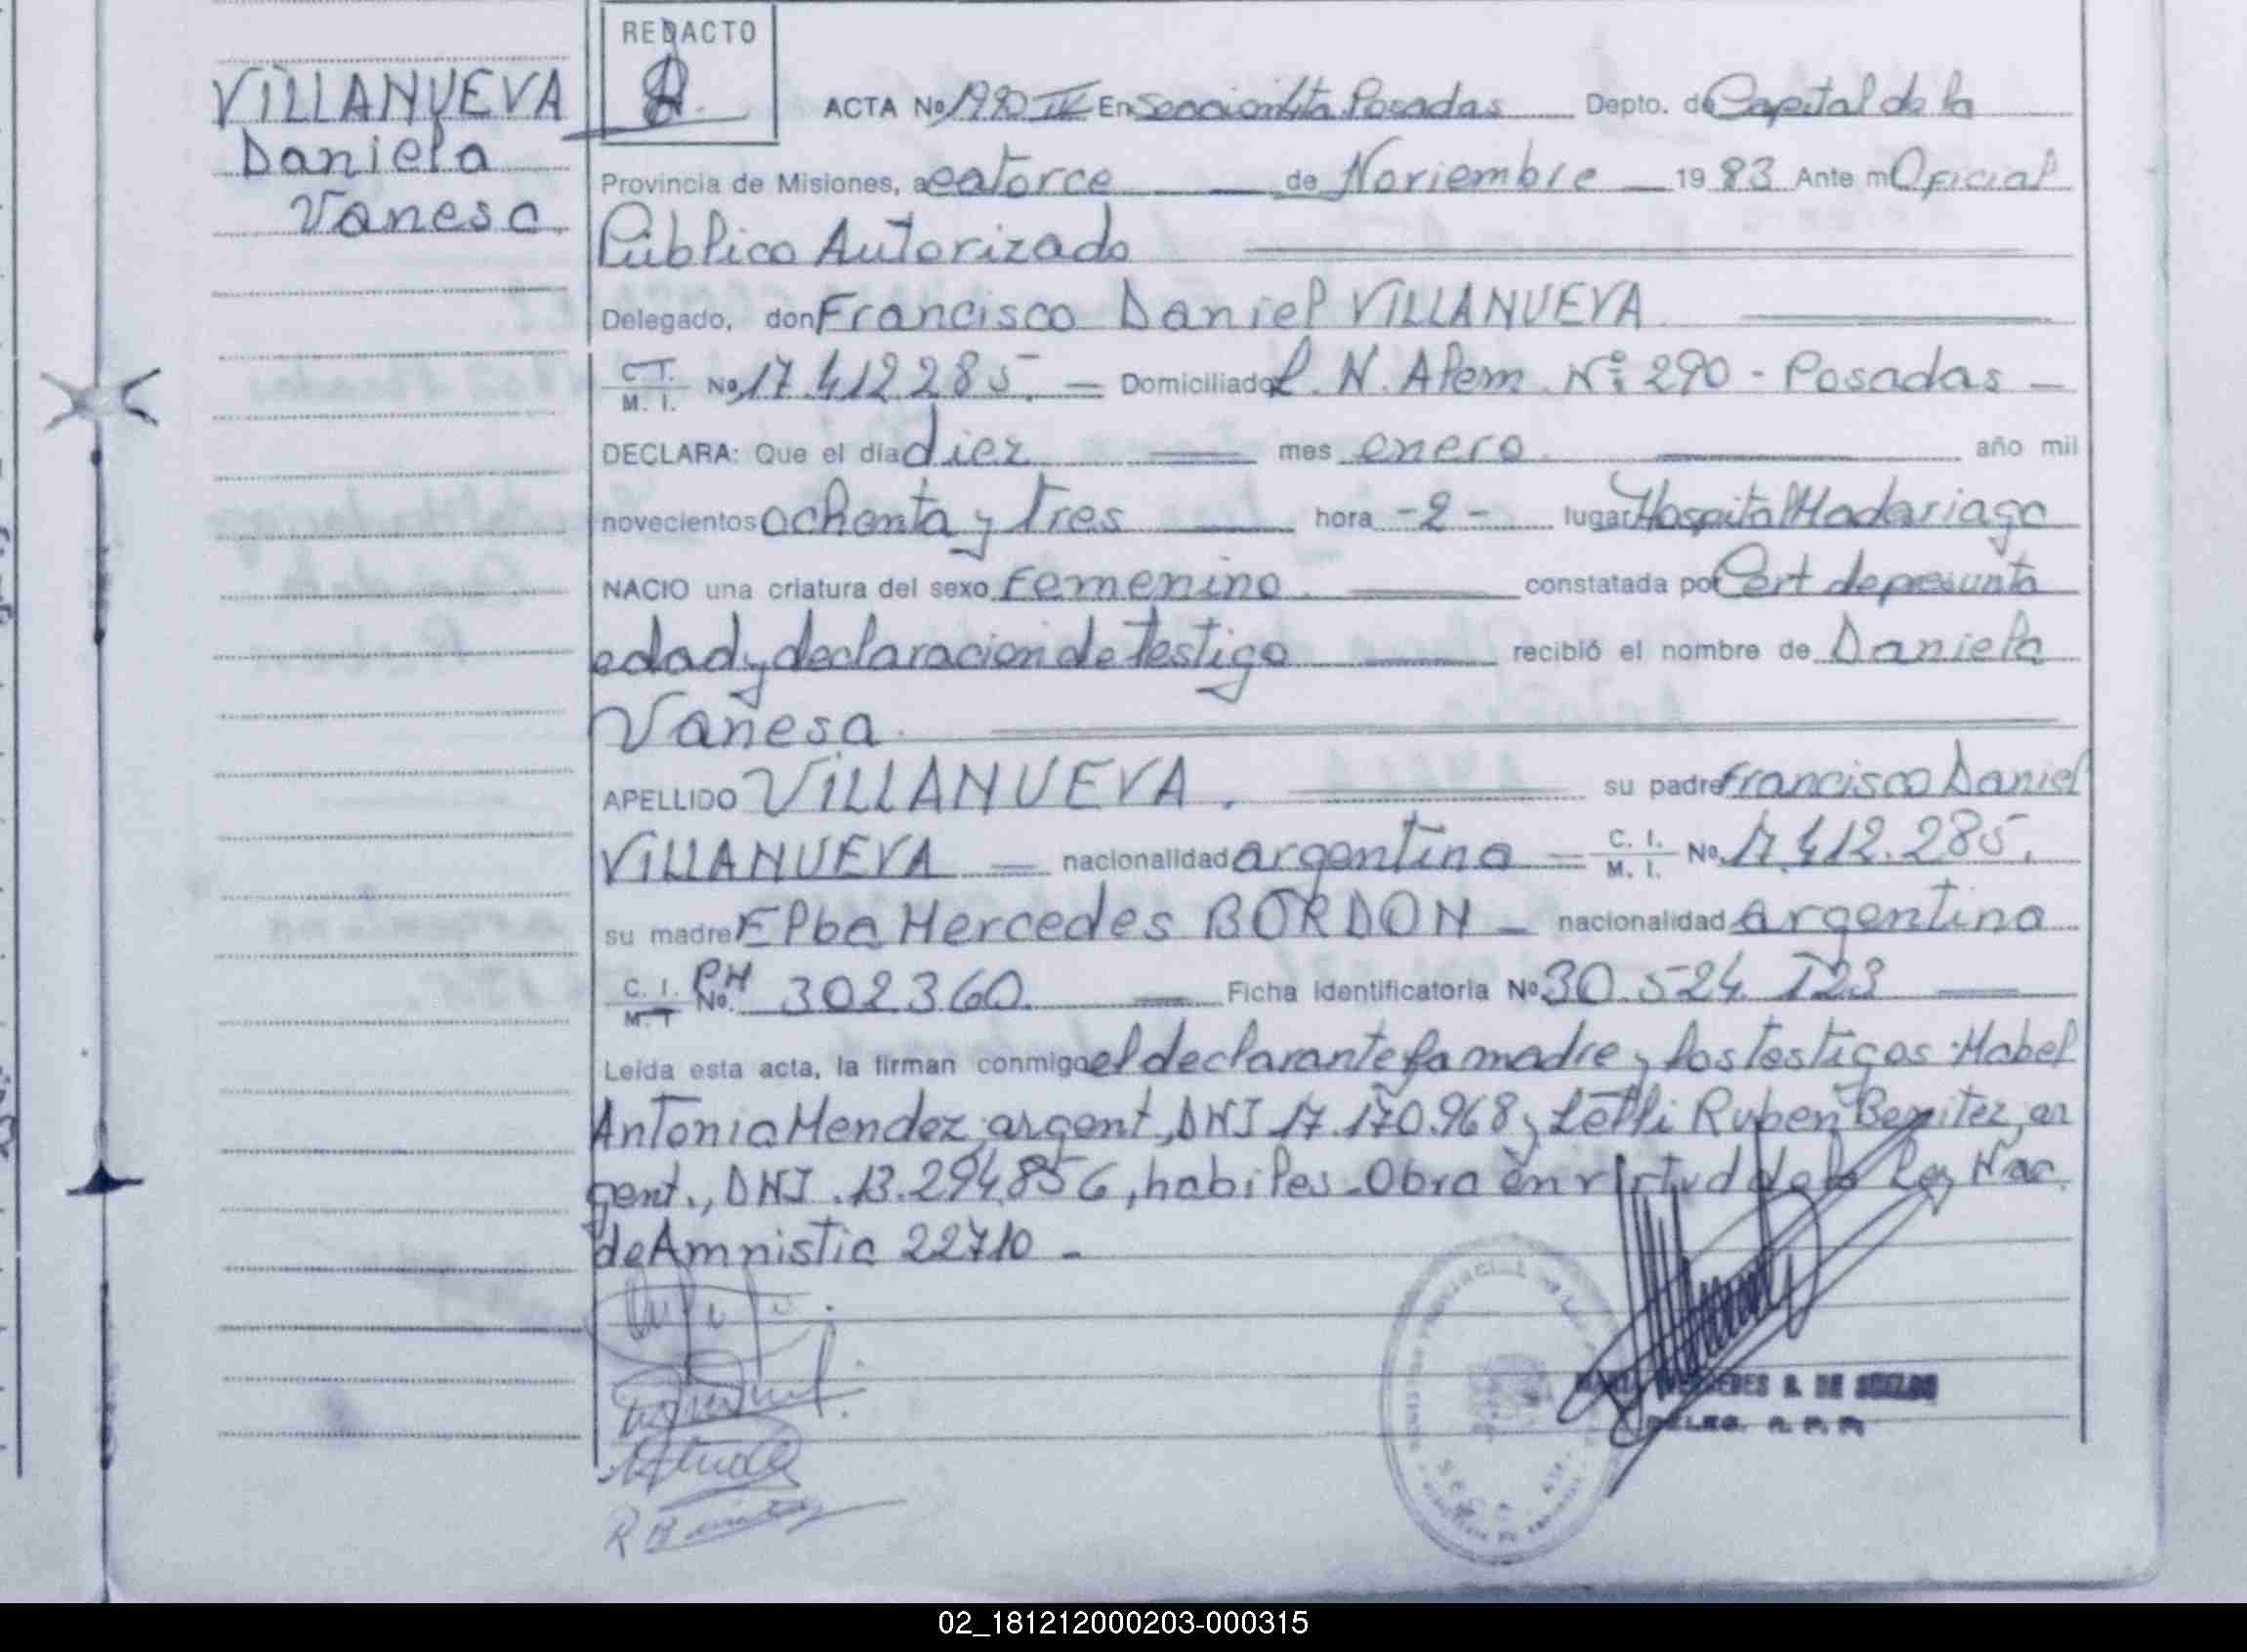 VILLANUEVA
Daniela
Vanesa.
REDACTO
ACTA Nº 1990 IV En Seccion 4ta Posadas Depto. de Capital de la
Provincia de Misiones, a catorce de Noviembre 1983 Ante mi Oficial
Público Autorizado
Delegado, don Francisco Daniel VILLANUEVA
C. I. M. I. Nº 17.412.285. Domiciliado L. N. Alem Nº 290 - Posadas -
DECLARA: Que el día diez mes enero año mil
novecientos ochenta y tres hora -2- lugar Hospital Madariaga
NACIO una criatura del sexo Femenino. constatada por Cert de presunta
edad y declaracion de testigo recibió el nombre de Daniela
Vanesa.
APELLIDO VILLANUEVA. su padre Francisco Daniel
VILLANUEVA nacionalidad argentina C. I. M. I. Nº 17.412.285.
su madre Elba Mercedes BORDON - nacionalidad argentina
C. I. M. I. Nº PH 302360. Ficha identificatoria Nº 30.524.123
Leída esta acta, la firman conmigo el declarante la madre y los testigos Mabel
Antonia Mendez, argent, DNI 17.170.968 y Ruben Benitez, ar
gent., DNI. 13.294.856, habiles. Obra en virtud de la Ley Nac.
de Amnistia 22710 -
R Benitez
B. DE
DELEG. R. P. P.
02_181212000203-000315